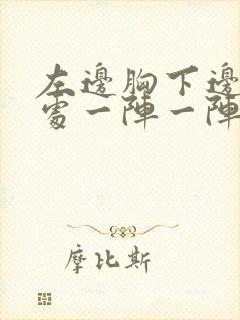 左邊胸下邊
處一陣一陣
摩比斯